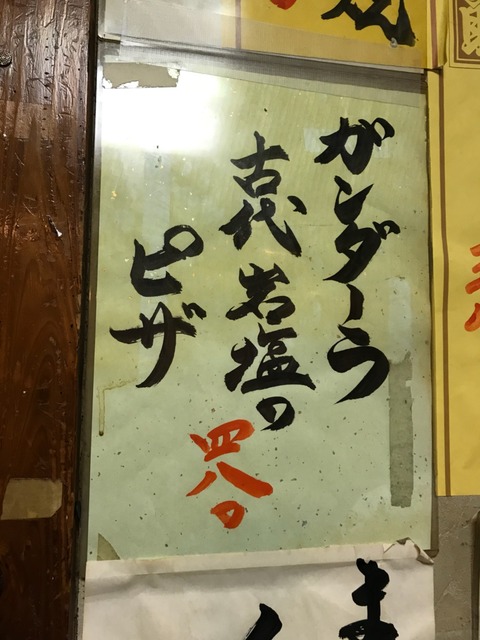 ガンダーラ
古代岩塩の
ピザ
四八〇